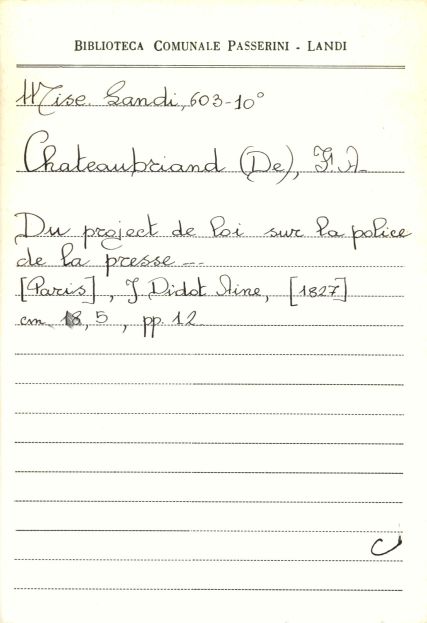 BIBLIOTECA COMUNALE PASSERINI - LANDI
Misc. Landi, 603-10°
Chateaubriand (De), F. A.
Du project de loi sur la police
de la presse ---
[Paris], J Didot Aine, [1827]
cm. 18,5, pp. 12